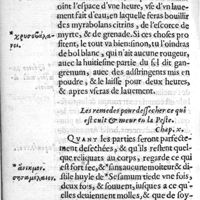 oint l'espace d'vne heure, vse d'vn laue-
ment fait d'eau, en laquelle feras bouillir
des myrabolans citrins, de l'escorce de
myrte, & de grenade. Si ces choses pro-
fitent, le tout va bien: sinon, tu l'oindras
de bol blanc, qui n'ait aucune rougeur,
auec la huitiesme partie du sel dit gan-
gerron, auec des adstringents mis en
poudre, & le laisse pour deux heures,
& apres vseras de lauement.
Les remedes pour dessecher ce qui
est cuit & meur en la Peste.
Chap. x.
QVANT les parties seront parfaicte-
ment desechées, & qu'ils restent quel-
que reliques au corps, regarde ce qui
est fort sec, & *sans aucune moiteur & di-
stile huyle de *Sesamum tiede vne fois,
deux fois, & souuent, iusques à ce qu'-
elles deuiennent molles, & que de soy-